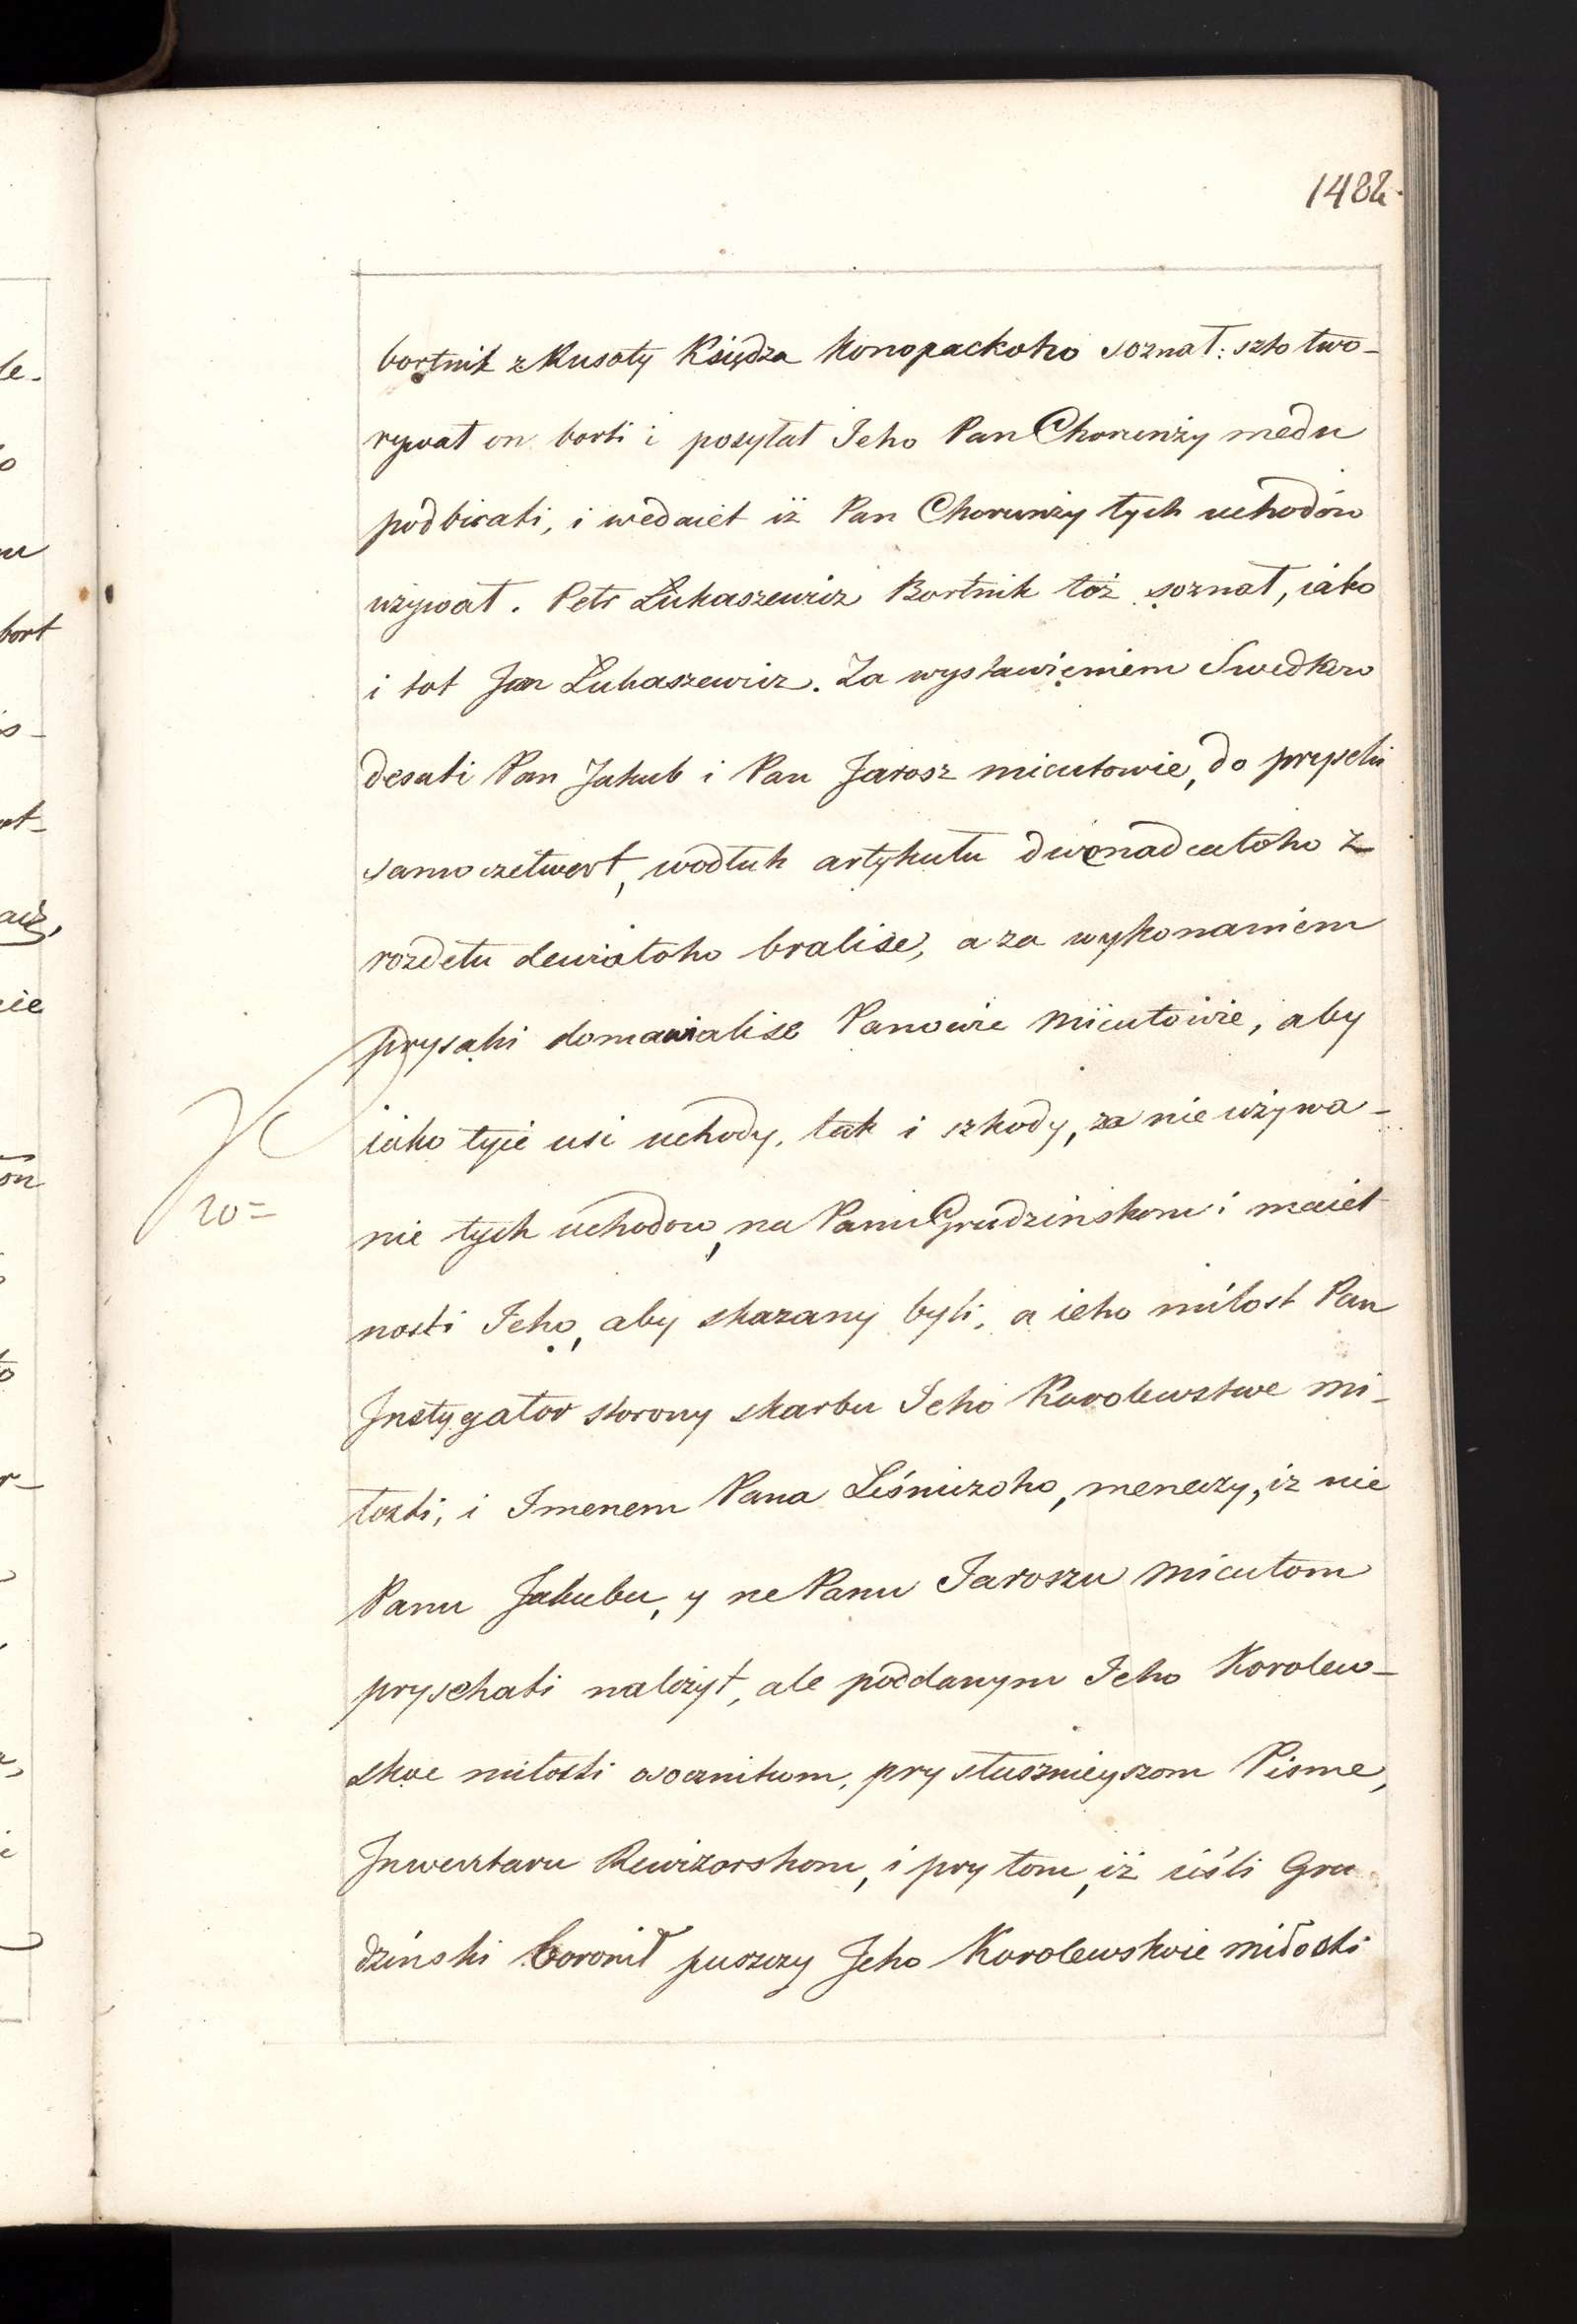 1488.
bortnik z Rusoty Księdza Konopackoho soznał: szto two-
rywał on borti i posyłał Jeho Pan Chorunży medu
podbirati, i wedaiet iż Pan Chorunży tych uchodów
używał. Petr Łukaszewicz Bortnik toż soznał, iako
i tot Jan Łukaszewicz. Za wystawięniem Swedkow
desati Pan Jakub i Pan Jarosz micutowie, do prysehi
samoczetwert, wodłuh artykułu dwonadcatoho z
rozdełu dewiatoho bralise, a za wykonaniem
prysahi domawialise Panowie Micutowie, aby
iako tyie usi uchody, tak i szkody, za nie używa-
nie tych uchodow, na Panu Grudzinskom i maiet
nosti Jeho, aby skazany byli, a ieho miłost Pan
Instygator storony skarbu Jeho Korolewstwe mi-
łosti, i Imenem Pana Leśniczoho, meneczy, iz nie
Panu Jakubu, y ne Panu Jaroszu Micutom
prysehati należyt, ale poddanym Jeho Korolew-
skoe miłosti osocznikom, pry słuszneyszom Pisme,
Inwentaru Rewizorskom, i pry tom, iż ieśli Gru
dziński boronił puszczy Jeho Korolewskoie miłosti
ro=